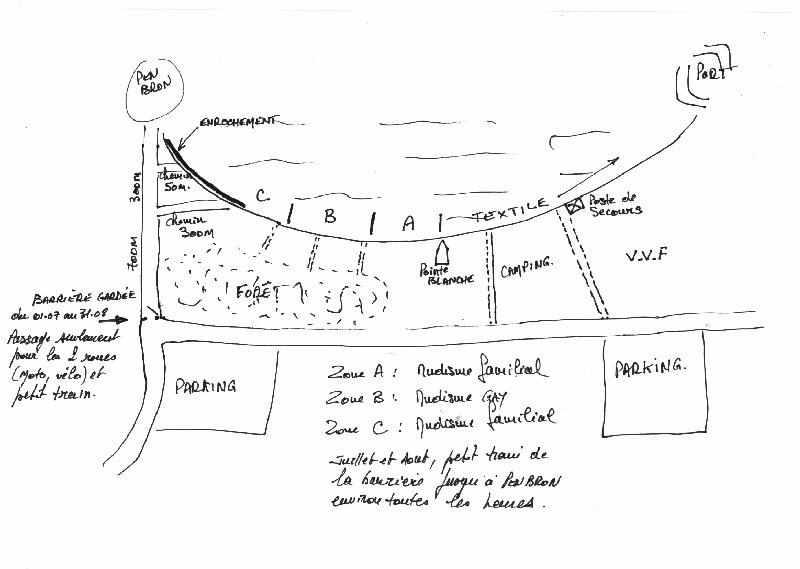 PEN
BRON
PORT
ENROCHEMENT
chemin
50m.
300M
C
B
A
TEXTILE
Poste de
Secours
chemin
300M
700M
Pointe
BLANCHE
CAMPING.
V.V.F
FORÊT
BARRIÈRE GARDÉE
du 01.07 au 31.08
Passage seulement
pour les 2 roues
(Moto, vélo) et
petit train.
PARKING
PARKING.
Zone A : Nudisme familial
Zone B : Nudisme GAY
Zone C : Nudisme familial
Juillet et Aout, petit train de
la barrière jusqu'à PEN BRON
environ toutes les heures.